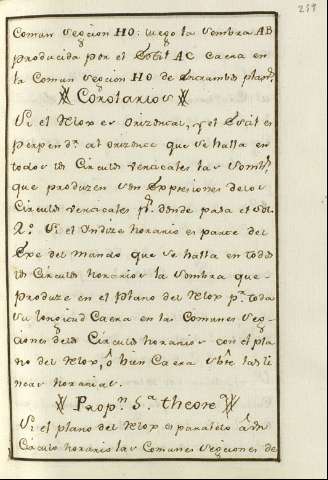 259
Comun secçion HO: luego la Sombra AB
producida por el Estil AC caera en
la Comun secçion HO de Entrambos planos.
Corolarios
Si el Relox es Orizontal, y el Estil es
perpend.r al orizonte que se halla en
todos los Circulos verticales las Somb.s
que produzen son Expresiones de los
Circulos verticales p.r donde pasa el Sol.
2.º Si el Yndize horario es parte del
Exe del Mundo que se halla en todos
los Circulos horarios la Sombra que
produze en el plano del Relox p.r toda
su longitud Caera en las Comunes seç-
çiones de los Circulos horarios con el pla
no del Relox, ó bien Caera sobre las li
neas horarias.
Prop.n 5.a theore
Si el plano del Relox es paralelo á un
Circulo horario las Comunes secçiones de